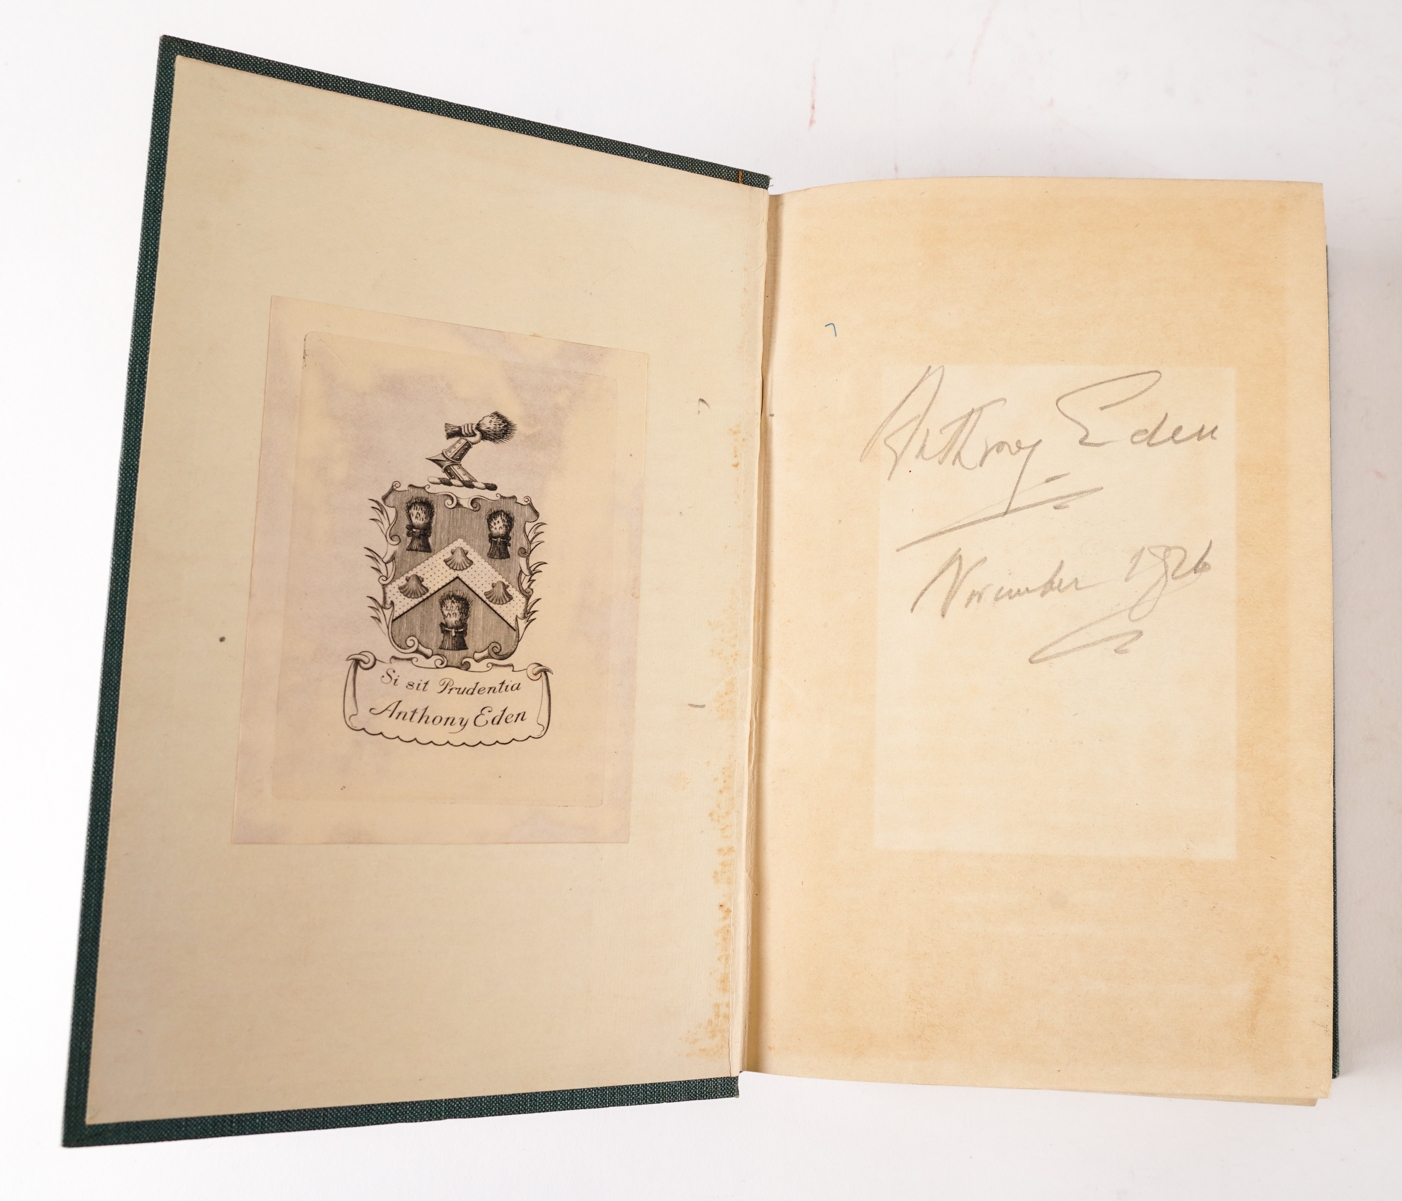 Si sit Prudentia
Anthony Eden
Anthony Eden
November 1926